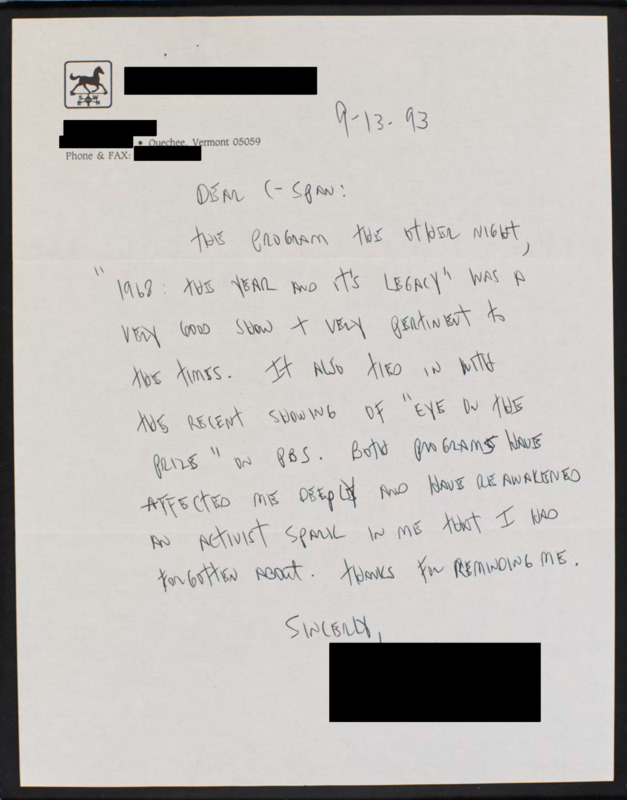 • Quechee, Vermont 05059
Phone & FAX:
9-13-93
DEAR C-SPAN:
THE PROGRAM THE OTHER NIGHT,
"1968: THE YEAR AND IT'S LEGACY" WAS A
VERY GOOD SHOW + VERY PERTINENT TO
THE TIMES. IT ALSO TIED IN WITH
THE RECENT SHOWING OF "EYE ON THE
PRIZE" ON PBS. BOTH PROGRAMS HAVE
AFFECTED ME DEEPLY AND HAVE REAWAKENED
AN ACTIVIST SPARK IN ME THAT I HAD
FORGOTTEN ABOUT. THANKS FOR REMINDING ME.
SINCERLY,